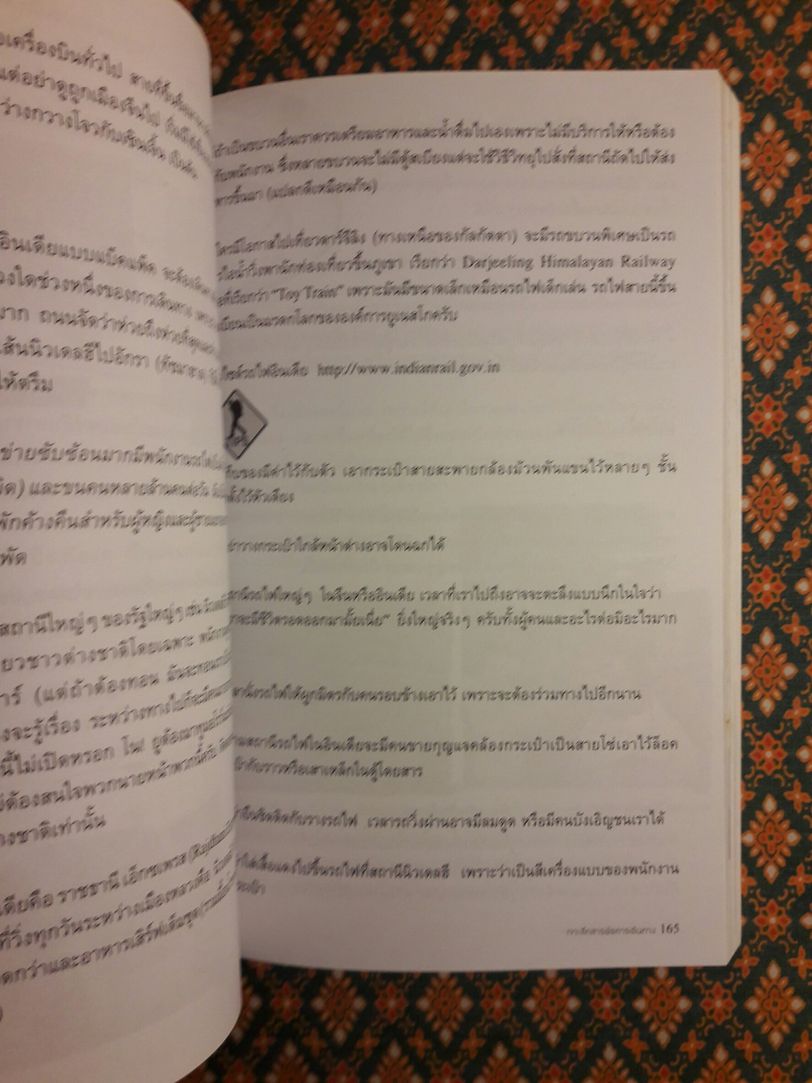 เครื่องบินทั่วไป
แต่อย่าดูถูกเมืองจีนไป
ว่างกวางโจวกับเซินเจิ้น เป็นต้น
อินเดียแบบแบ็คแพ็ค จะต้อง
วงใดช่วงหนึ่งของการเดินทาง
มาก ถนนจัดว่าห่วยถึงห่วยที่สุด
เส้นนิวเดลฮีไปอักรา
ให้ตรึม
ข่ายซับซ้อนมากมีพนักงาน
และขนคนหลายล้านคนต่อวัน
พักค้างคืนสำหรับผู้หญิงและผู้ชาย
พัด
สถานีใหญ่ๆ ของรัฐใหญ่ๆ เช่น
ยวชาวต่างชาติโดยเฉพาะ
าร์ (แต่ถ้าต้องทอน
งจะรู้เรื่อง ระหว่างทางไป
นี้ไม่เปิดหรอก โน!
ต้องสนใจพวกนายหน้าพวกนี้ครับ
างชาติเท่านั้น
เดียคือ ราชธานี เอ็กซเพรส
ที่วิ่งทุกวันระหว่างเมืองหลวงคือ
ดกว่าและอาหารเสิร์ฟเต็มชุด
ถ้าเป็นขบวนอื่นเราควรเตรียมอาหารและน้ำดื่มไปเองเพราะไม่มีบริการให้หรือต้อง
กับพนักงาน ซึ่งหลายขบวนจะไม่มีตู้เสบียงแต่จะใช้วิธีวิทยุไปสั่งที่สถานีถัดไปให้ส่ง
หารขึ้นมา (แปลกดีเหมือนกัน)
ใครมีโอกาสไปเที่ยวดาร์จีลิง (ทางเหนือของกัลกัตตา) จะมีรถขบวนพิเศษเป็นรถ
ไอน้ำวิ่งพานักท่องเที่ยวขึ้นภูเขา เรียกว่า Darjeeling Himalayan Railway
ที่เรียกว่า "Toy Train" เพราะมันมีขนาดเล็กเหมือนรถไฟเด็กเล่น รถไฟสายนี้ขึ้น
เบียนเป็นมรดกโลกขององค์การยูเนสโกครับ
ไซต์รถไฟอินเดีย http://www.indianrail.gov.in
TIPS
ก็บของมีค่าไว้กับตัว เอากระเป๋าสายสะพายกล้องม้วนพันแขนไว้หลายๆ ชั้น
ไว้ตัวเดียว
ย่าวางกระเป๋าใกล้หน้าต่างอาจโดนฉกได้
สถานีรถไฟใหญ่ๆ ในจีนหรืออินเดีย เวลาที่เราไปถึงอาจจะตะลึงแบบนึกในใจว่า
ราจะมีชีวิตรอดออกมามั้ยเนี่ย" ยิ่งใหญ่จริงๆ ครับทั้งผู้คนและอะไรต่อมิอะไรมาก
นั่งรถไฟให้ผูกมิตรกับคนรอบข้างเอาไว้ เพราะจะต้องร่วมทางไปอีกนาน
ามสถานีรถไฟในอินเดียจะมีคนขายกุญแจคล้องกระเป๋าเป็นสายโซ่เอาไว้ล็อค
ป๋ากับราวหรือเสาเหล็กในตู้โดยสาร
ย่ายืนชิดติดกับรางรถไฟ เวลารถวิ่งผ่านอาจมีลมดูด หรือมีคนบังเอิญชนเราได้
ย่าใส่เสื้อแดงไปขึ้นรถไฟที่สถานีนิวเดลฮี เพราะว่าเป็นสีเครื่องแบบของพนักงาน
ระเป๋า
165